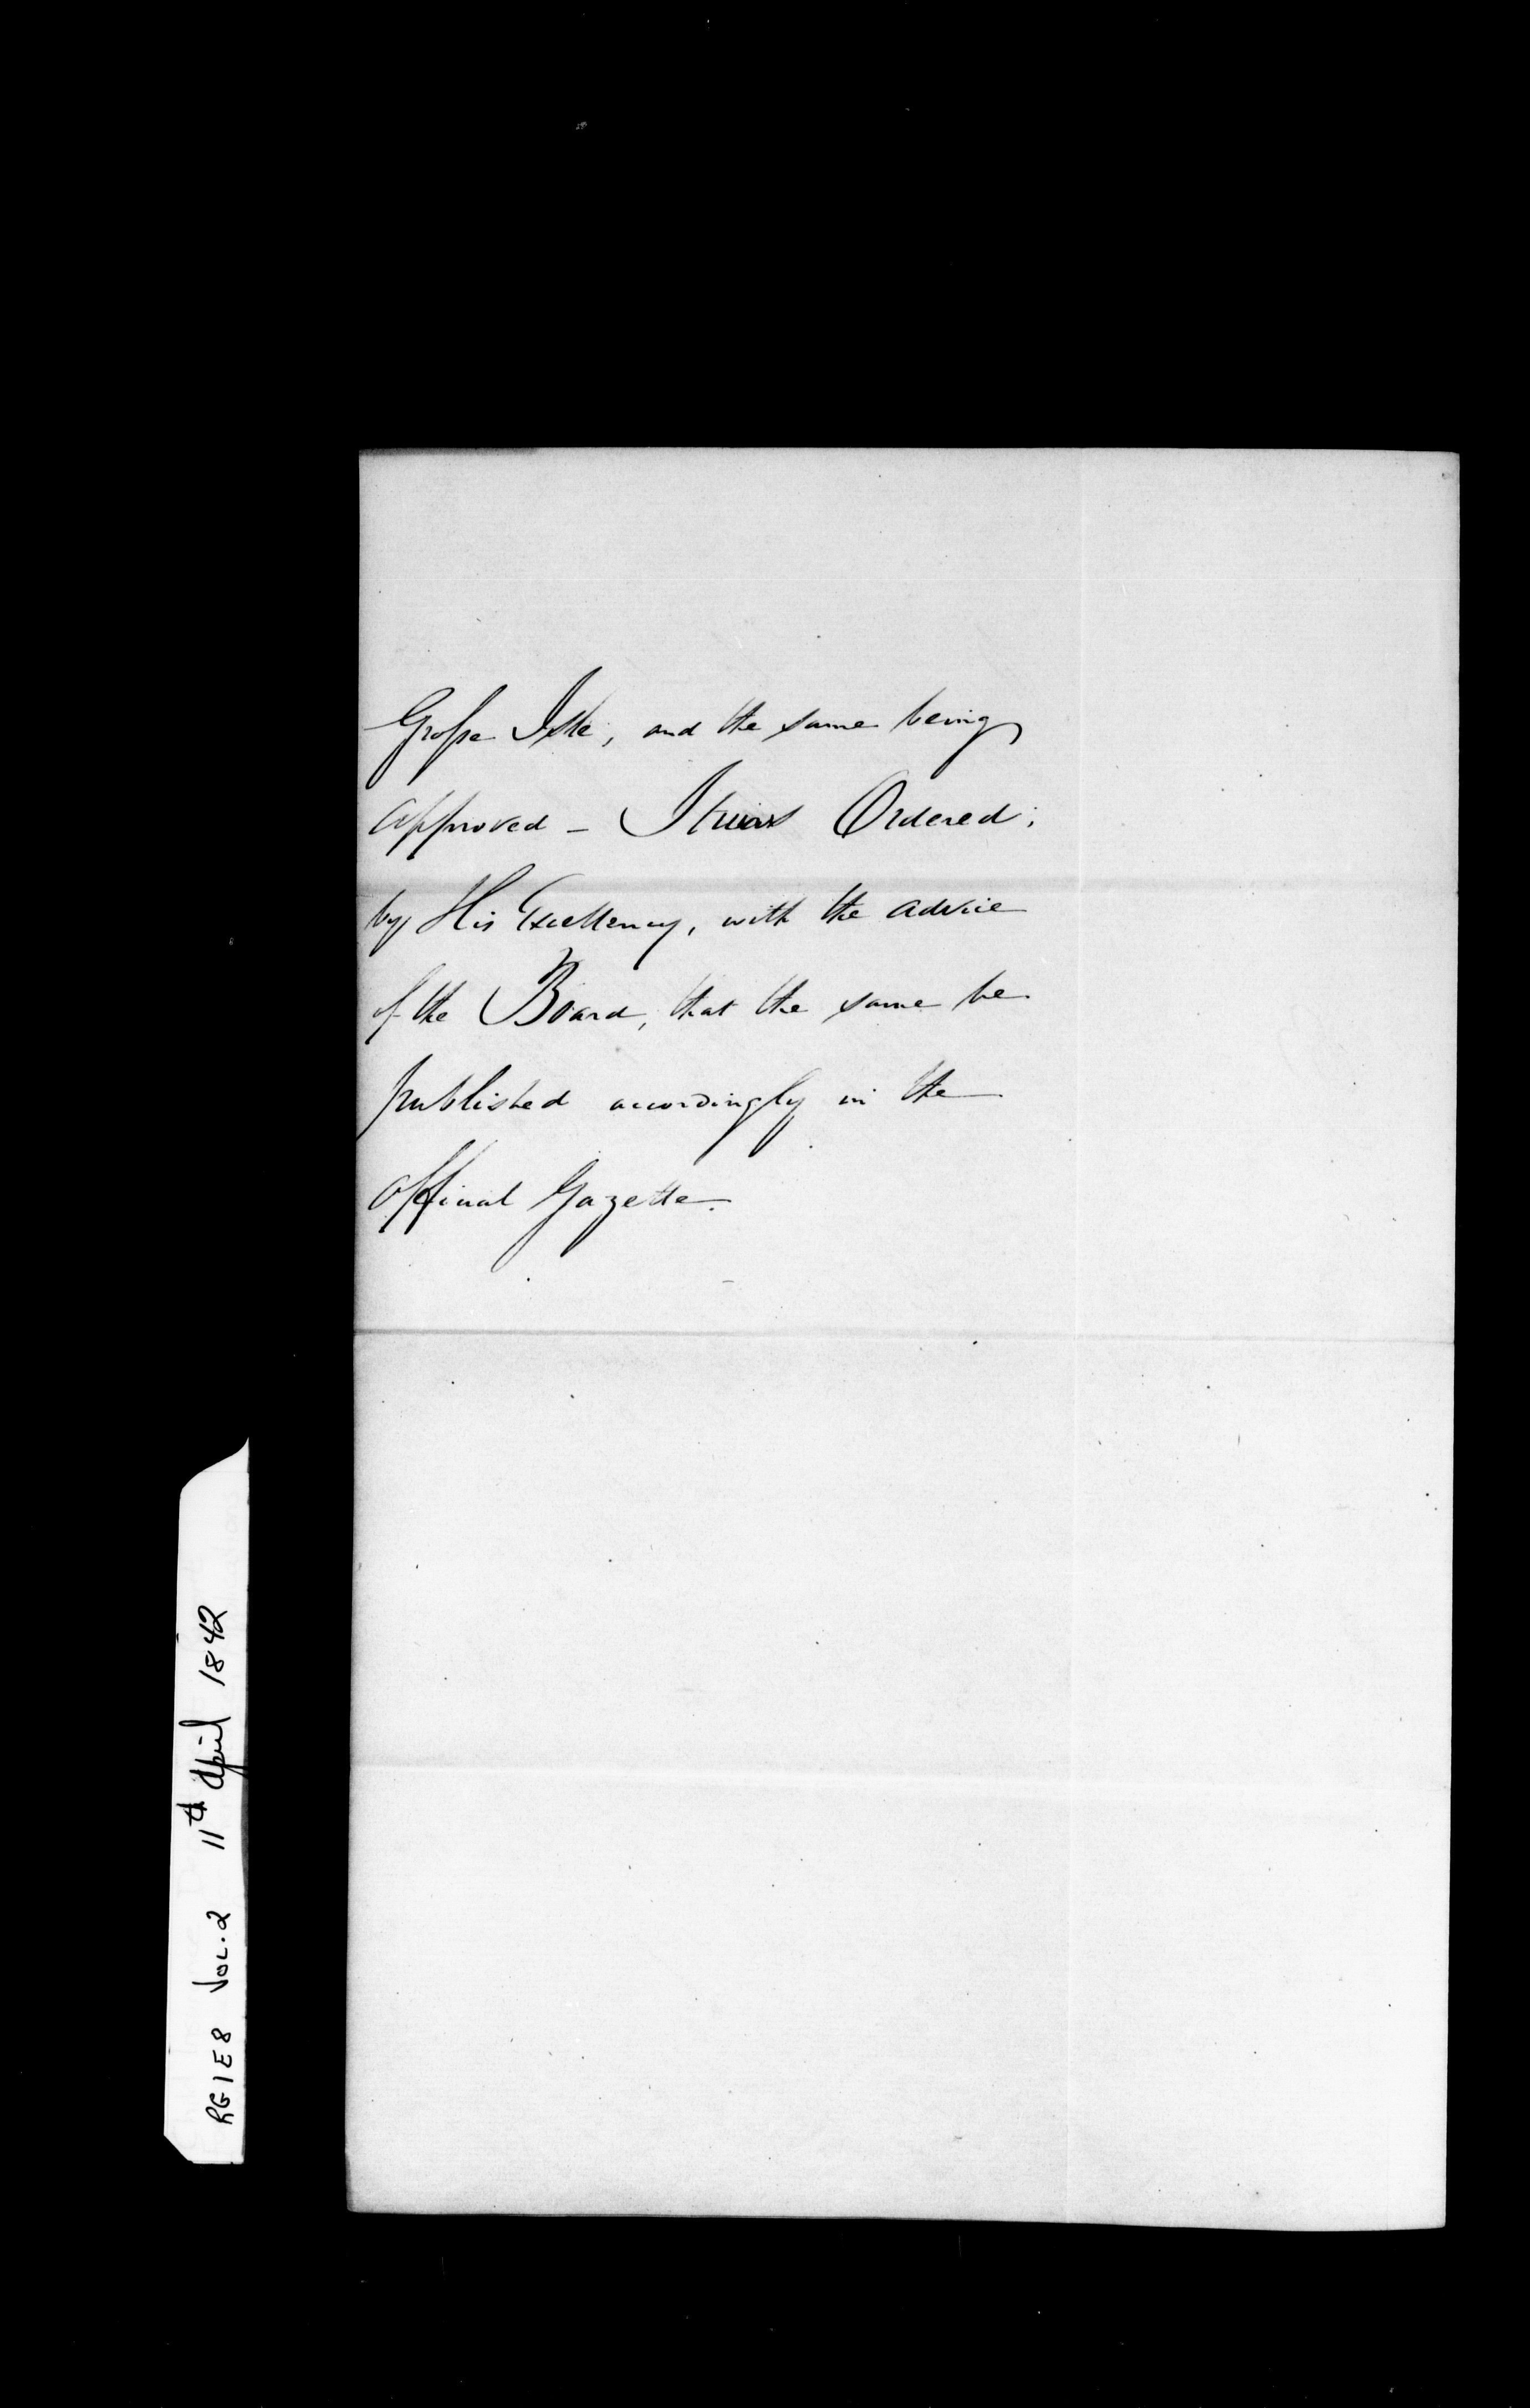 Grosse Isle, and the same being
approved – It was Ordered,
by His Excellency, with the advice
of the Board, that the same be
published accordingly in the
Official Gazette.
RG1E8 VOL.2 11th April 1842